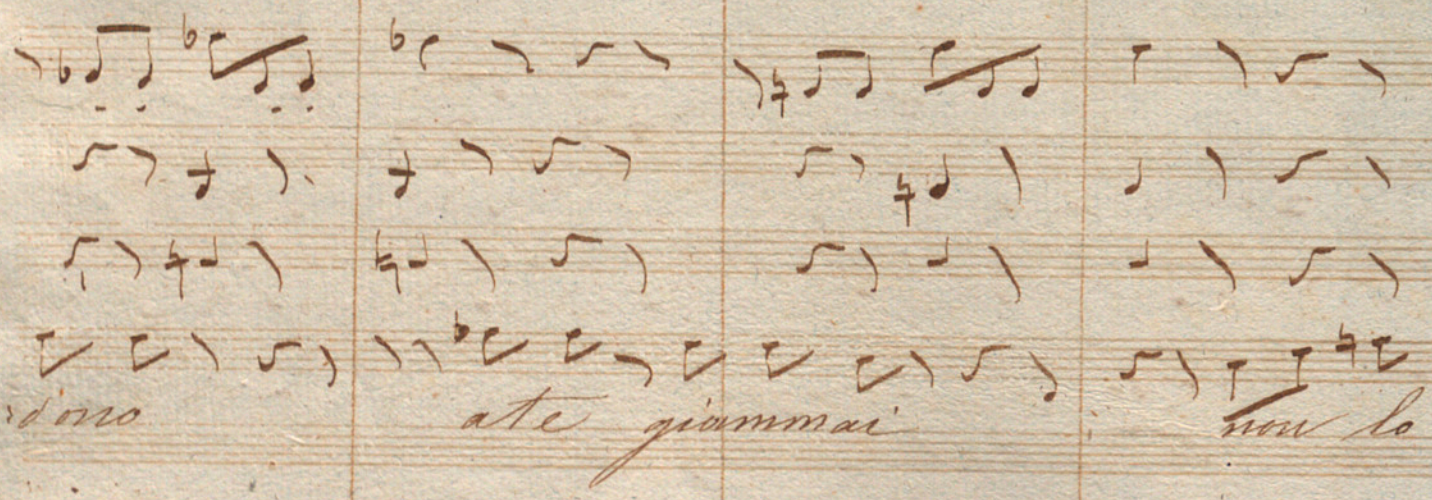 dono ate giammai non lo